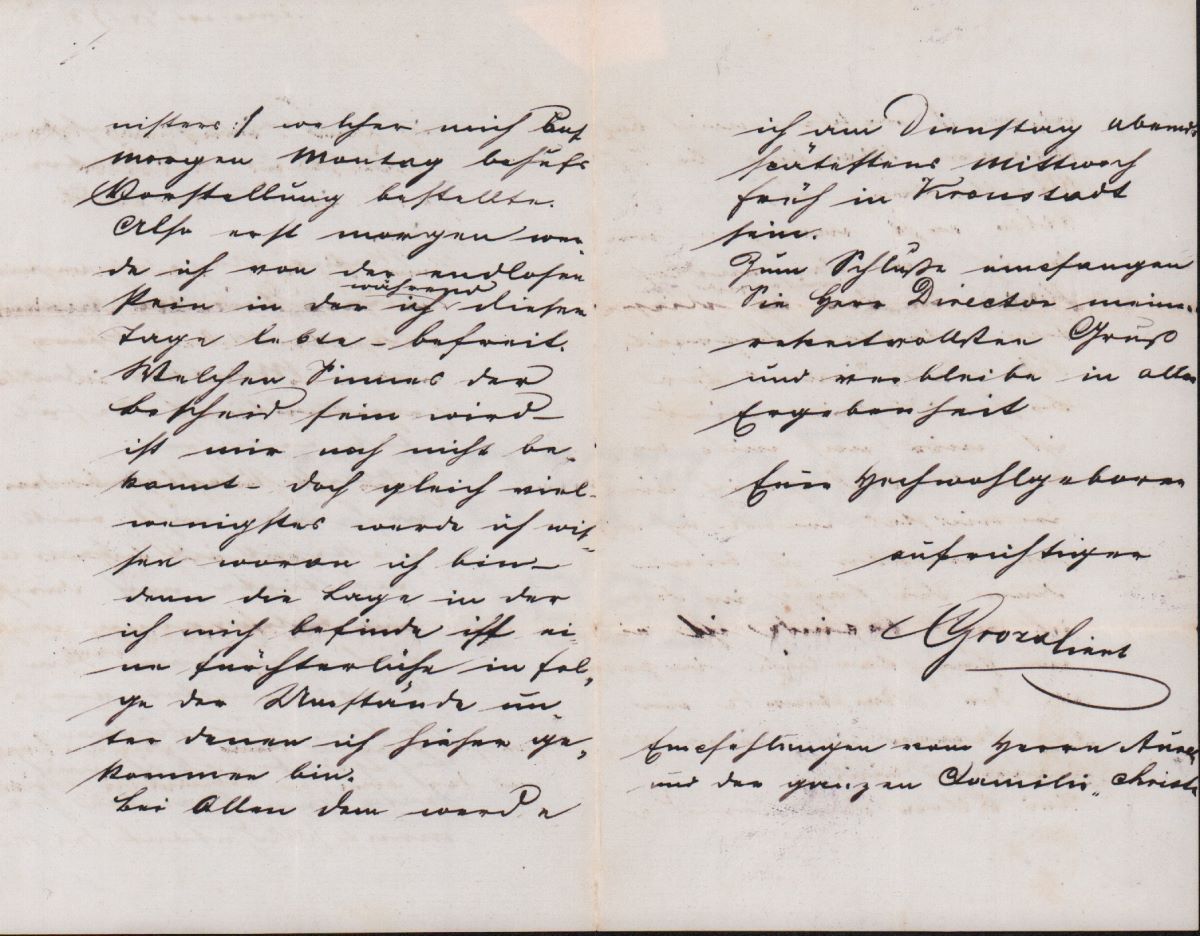 nisters :/ welcher mich auf
morgen Montag behufs
Vorstellung bestellte.
Also erst morgen wer-
de ich von der endlosen
während
Pein in der ich diesen
Tage lebte – befreit.
Welchen Sinnes der
Bescheid sein wird –
ist mir noch nicht be-
kannt – doch gleich viel –
wenigstes werde ich wis-
sen woran ich bin –
denn die Lage in der
ich mich befinde ist ei-
ne fürchterliche in fol-
ge der Umstände un-
ter denen ich hieher ge-
kommen bin.
Bei Allen dem werde
ich am Dienstag abends
spätestens Mittwoch
früh in Kronstadt
sein.
Zum Schluße empfangen
Sie Herr Director meinen
Gruß
und verbleibe in aller
Ergebenheit
Euer Hochwohlgeboren
aufrichtiger
Empfehlungen vom Herrn
und der ganzen Familie